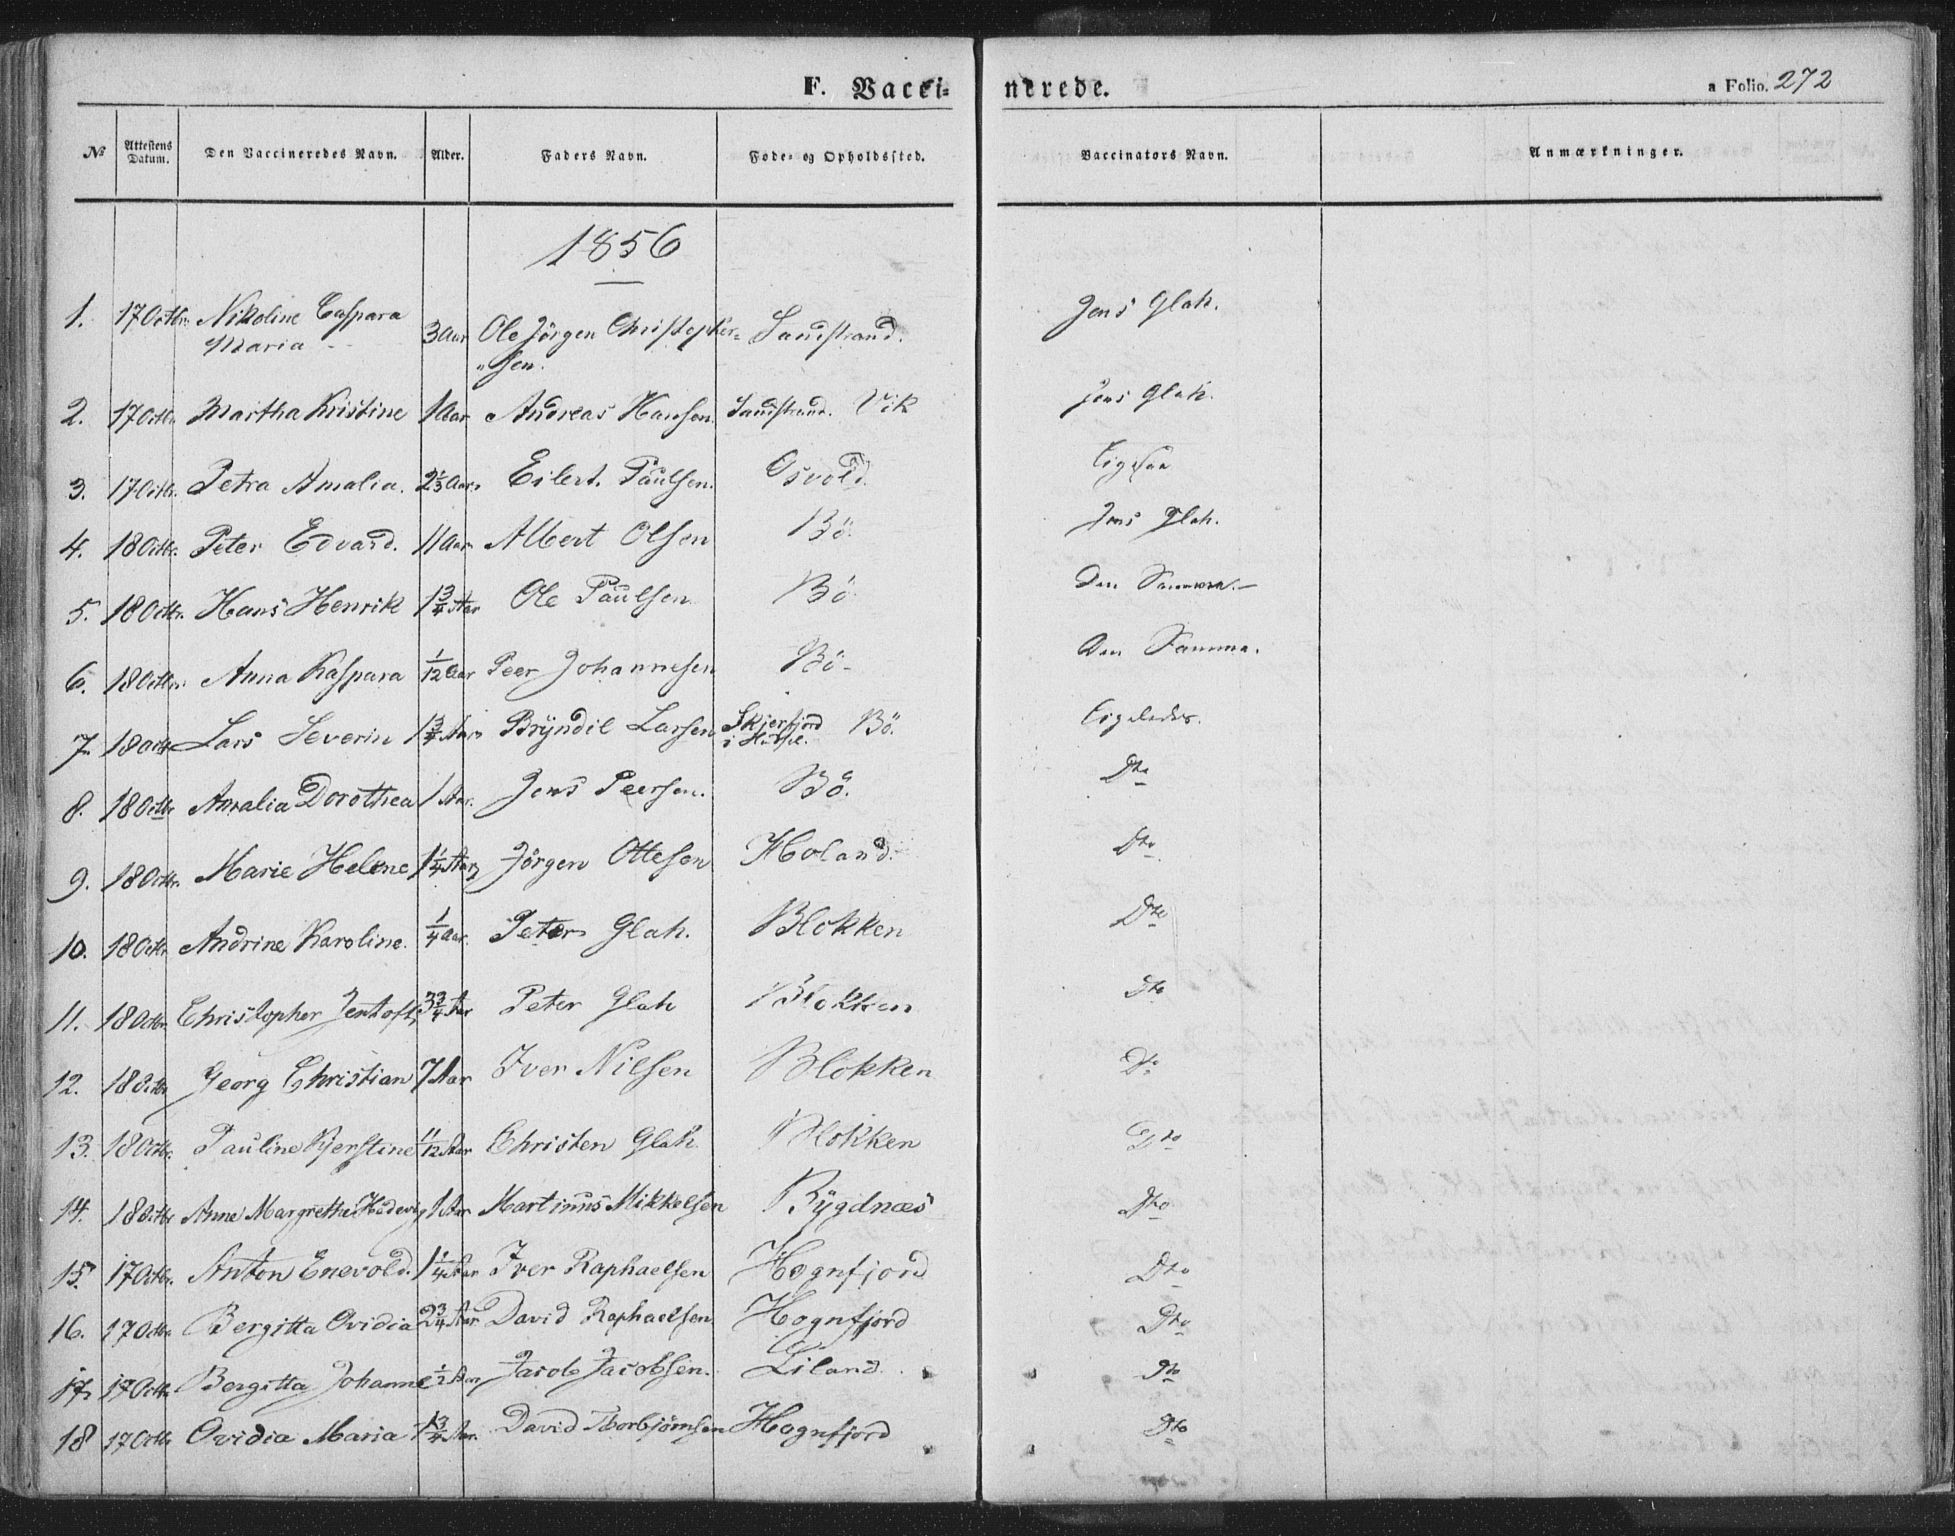 F. Vacci- nerede. a Folio. 272
No Attestens Datum. Den Vaccineredes Navn. Alder. Faders Navn. Føde- og Opholdssted. Vaccinators Navn. Anmærkninger.
1856
1. 17 Octbr. Nikoline Caspara Maria 3 Aar Ole Jörgen Christopher-"sen. Sandstrand. Jens Glah.
2. 17 Octbr. Martha Kristine 1 Aar Andreas Hansen. Sandstrand. Vik Jens Glah.
3. 17 Octbr. Petra Amalia. 2 1/3 Aar. Eilert. Paulsen. Osvold.
4. 18 Octbr. Peter Edvard. 11 Aar Albert Olsen Bö. Jens Glah.
5. 18 Octbr. Hans Henrik 1 3/4 Aar Ole Paulsen Bö Den Samme.
6. 18 Octbr. Anna Kaspara 1/12 Aar Peer Johannesen Bö- Den Samme.
7. 18 Octbr Lars Severin 1 3/4 Aar Bryndil Larsen Skjerfjord Bö. Ligeledes.
8. 18 Octbr Amalia Dorothea 1 Aar. Jens Peersen. Bö. Dto
9. 18 Octbr. Marie Helene 1 1/4 Aar Jörgen Ottesen Holand. Dto
10. 18 Octbr Andrine Karoline. 1/4 Aar. Peter Glah. Blokken Dto
11. 18 Octbr. Christopher Jentoft 3 3/4 Aar Peter Glah Blokken Dto
12. 18 Octbr Georg Christian 7 Aar Iver Nilsen Blokken Do
13. 18 Octbr. Pauline Kjerstine 11/12 Aar Christen Glah Blokken Dto
14. 18 Octbr Anne Margrethe Hedevig 1 Aar Martinus Mikkelsen Bygdnæs Dto
15. 17 Octbr. Anton Enevold. 1 1/4 Aar Iver Raphaelsen Hognfjord Dto
16. 17 Octbr Bergitta Ovidia 2 3/4 Aar David Raphaelsen Hognfjord Dto
17. 17 Octbr Bergitta Johanne 1/2 Aar Jacob Jacobsen. Liland Dto
18 17 Octbr Ovidia Maria 1 3/4 Aar. David Thorbjörnsen Hognfjord Dto